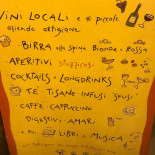 VINI LOCALI e di piccole
aziende artigiane
BIRRA alla spina BIONDA e ROSSA
APERITIVI stuzzicosi
COCKTAILS · LONGDRINKS
TÈ · TISANE INFUSI
CAFFÈ · CAPPUCCINO
DIGESTIVI · AMARI
e poi LIBRI e MUSICA